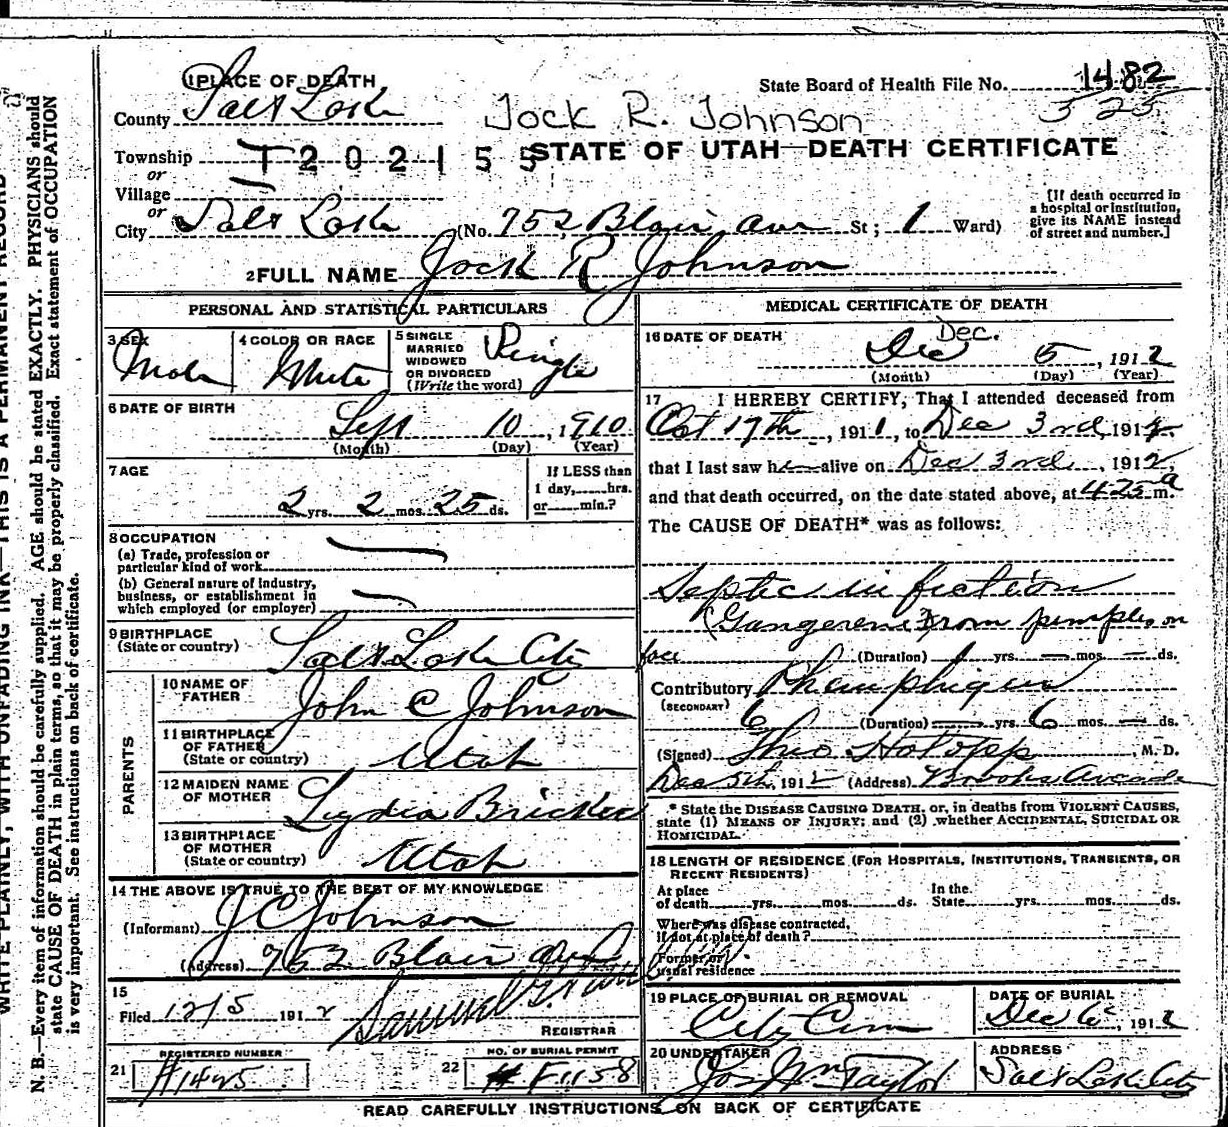 1 PLACE OF DEATH
State Board of Health File No. 1482
County Salt Lake
Jock R. Johnson
323
Township T 202155
STATE OF UTAH—DEATH CERTIFICATE
or
Village
or
City Salt Lake (No. 752 Blair Ave St; 1 Ward)
[If death occurred in
a hospital or institution,
give its NAME instead
of street and number.]
2 FULL NAME Jock R Johnson
PERSONAL AND STATISTICAL PARTICULARS
3 SEX Male
4 COLOR OR RACE White
5 SINGLE
MARRIED
WIDOWED
OR DIVORCED
(Write the word) Single
6 DATE OF BIRTH
Sept 10, 1910
(Month) (Day) (Year)
7 AGE
2 yrs. 2 mos. 25 ds.
If LESS than
1 day, hrs.
or min.?
8 OCCUPATION
(a) Trade, profession or
particular kind of work
(b) General nature of industry,
business, or establishment in
which employed (or employer)
9 BIRTHPLACE
(State or country) Salt Lake City
PARENTS
10 NAME OF
FATHER John C Johnson
11 BIRTHPLACE
OF FATHER
(State or country) Utah
12 MAIDEN NAME
OF MOTHER Lydia
13 BIRTHPLACE
OF MOTHER
(State or country) Utah
14 THE ABOVE IS TRUE TO THE BEST OF MY KNOWLEDGE
(Informant) J C Johnson
(Address) 752 Blair Ave
15
Filed 12/5 1912 Samuel G.
REGISTRAR
REGISTERED NUMBER
21 #1425
NO. OF BURIAL PERMIT
22 # F1158
MEDICAL CERTIFICATE OF DEATH
16 DATE OF DEATH Dec.
Dec 5, 1912
(Month) (Day) (Year)
17 I HEREBY CERTIFY, That I attended deceased from
Oct 17th, 1911, to Dec 3rd, 1912,
that I last saw h alive on Dec 3rd, 1912,
and that death occurred, on the date stated above, at 4 25 a m.
The CAUSE OF DEATH* was as follows:
Septic infiction
(Gangerene) from pimples on
face (Duration) 1 yrs. — mos. — ds.
Contributory Phemphigus
(SECONDARY) 6 (Duration) — yrs. 6 mos. — ds.
(Signed) Theo Hotopp, M. D.
Dec 5th, 1912 (Address) Brooks Arcade
* State the DISEASE CAUSING DEATH, or, in deaths from VIOLENT CAUSES,
state (1) MEANS OF INJURY; and (2) whether ACCIDENTAL, SUICIDAL OR
HOMICIDAL.
18 LENGTH OF RESIDENCE (FOR HOSPITALS, INSTITUTIONS, TRANSIENTS, OR
RECENT RESIDENTS)
At place
of death yrs. mos. ds.
In the
State yrs. mos. ds.
Where was disease contracted,
if not at place of death?
Former or
usual residence
19 PLACE OF BURIAL OR REMOVAL
City Cem
DATE OF BURIAL
Dec 6, 1912
20 UNDERTAKER
Jos Wm Taylor
ADDRESS
Salt Lake City
READ CAREFULLY INSTRUCTIONS ON BACK OF CERTIFICATE
WRITE PLAINLY, WITH UNFADING INK—THIS IS A PERMANENT RECORD
N. B.—Every item of information should be carefully supplied. AGE should be stated EXACTLY. PHYSICIANS should
state CAUSE OF DEATH in plain terms, so that it may be properly classified. Exact statement of OCCUPATION
is very important. See instructions on back of certificate.